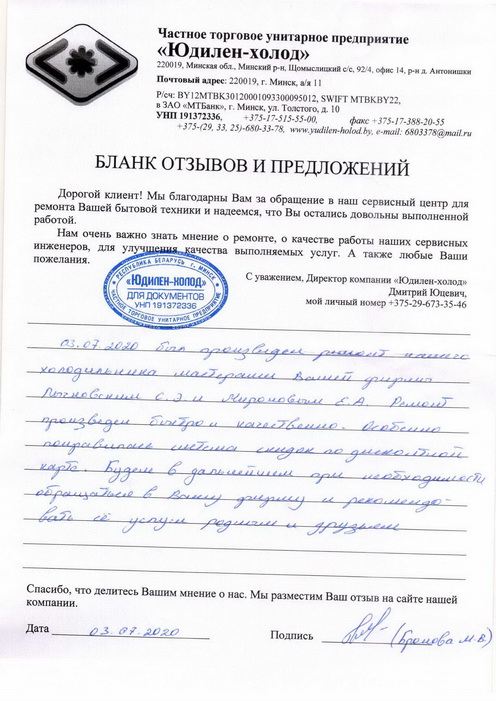 Частное торговое унитарное предприятие
«Юдилен-холод»
220019, Минская обл., Минский р-н, Щомыслицкий с/с, 92/4, офис 14, р-н д. Антонишки
Почтовый адрес: 220019, г. Минск, а/я 11
Р/сч: BY12MTBK30120001093300095012, SWIFT MTBKBY22,
в ЗАО «МТБанк», г. Минск, ул. Толстого, д. 10
УНП 191372336, +375-17-515-55-00, факс +375-17-388-20-55
+375-(29, 33, 25)-680-33-78, www.yudilen-holod.by, e-mail: 6803378@mail.ru
БЛАНК ОТЗЫВОВ И ПРЕДЛОЖЕНИЙ
Дорогой клиент! Мы благодарны Вам за обращение в наш сервисный центр для
ремонта Вашей бытовой техники и надеемся, что Вы остались довольны выполненной
работой.
Нам очень важно знать мнение о ремонте, о качестве работы наших сервисных
инженеров, для улучшения качества выполняемых услуг. А также любые Ваши
пожелания.
РЕСПУБЛИКА БЕЛАРУСЬ г. МИНСК
«ЮДИЛЕН-ХОЛОД»
ДЛЯ ДОКУМЕНТОВ
УНП 191372336
ЧАСТНОЕ ТОРГОВОЕ УНИТАРНОЕ ПРЕДПРИЯТИЕ
С уважением, Директор компании «Юдилен-холод»
Дмитрий Юцевич,
мой личный номер +375-29-673-35-46
03.07.2020 был произведен ремонт нашего
холодильника мастерами Вашей фирмы
С.Э. и Мироновым Е.А. Ремонт
произведен быстро и качественно. Особенно
понравилась система скидок по дисконтной
карте. Будем в дальнейшем при необходимости
обращаться в Вашу фирму и рекомендо-
вать её услуги родным и друзьям
Спасибо, что делитесь Вашим мнение о нас. Мы разместим Ваш отзыв на сайте нашей
компании.
Дата 03.07.2020 Подпись (Бронова М.В)